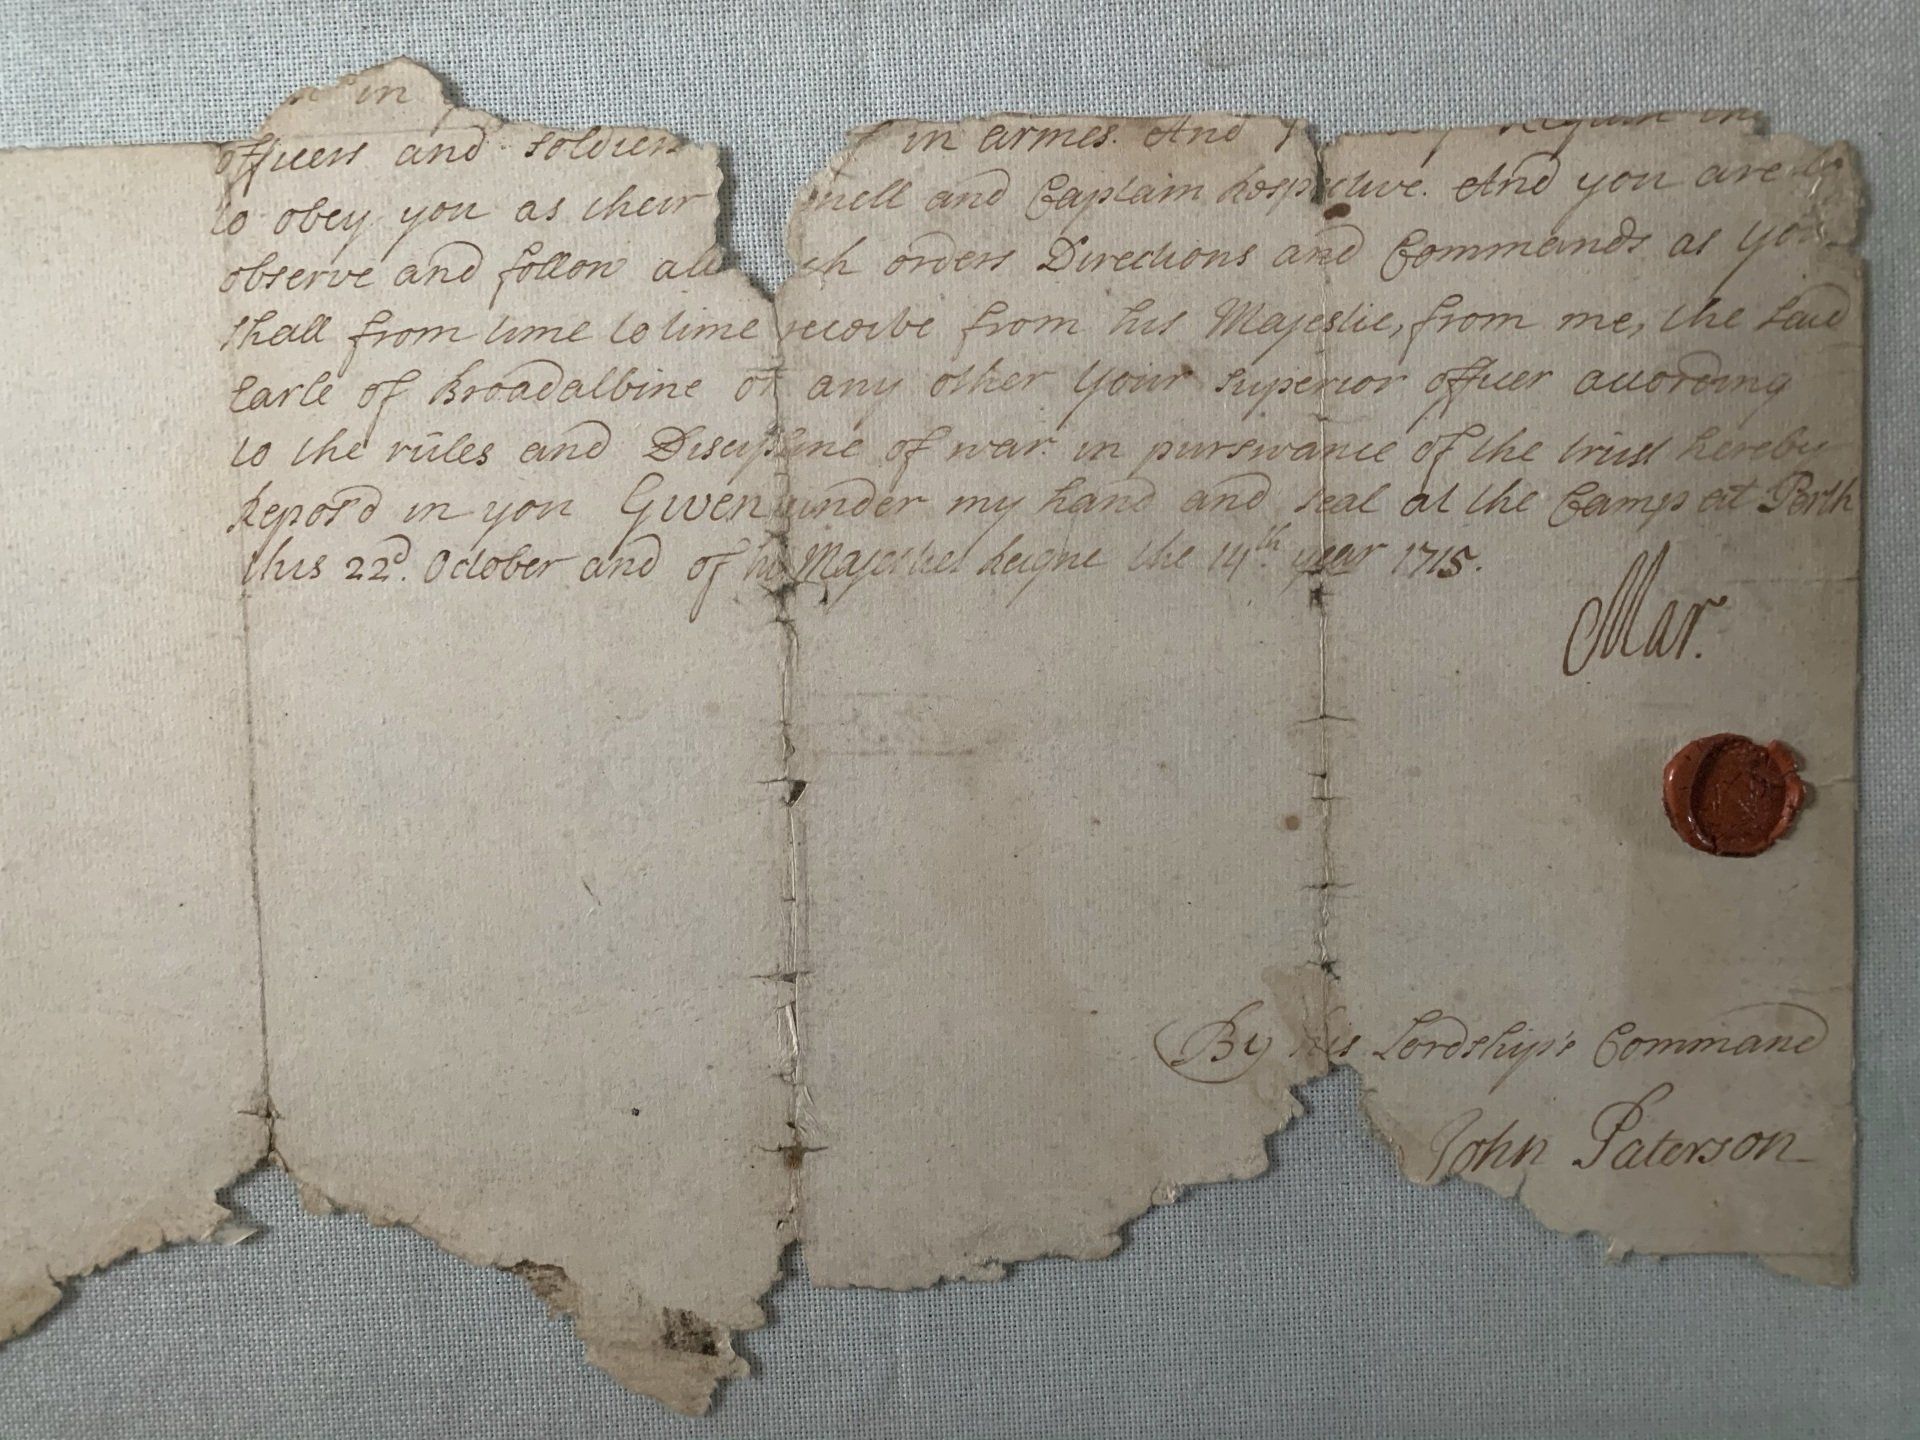 in
officers and soldiers in armes. And
to obey you as their nell and Captain Respective. And you are to
observe and follow all ch orders Directions and Commands as you
shall from time to time receive from his Majestie, from me, the said
Earle of Broadalbine or any other your superior officer according
to the rules and Discipline of war. in purswance of the trust hereby
Repos'd in you Given under my hand and seal at the Camp at Perth
this 22d. October and of his Majesties Reigne the 14th. year 1715.
Mar.
By his Lordship's Command
John Paterson